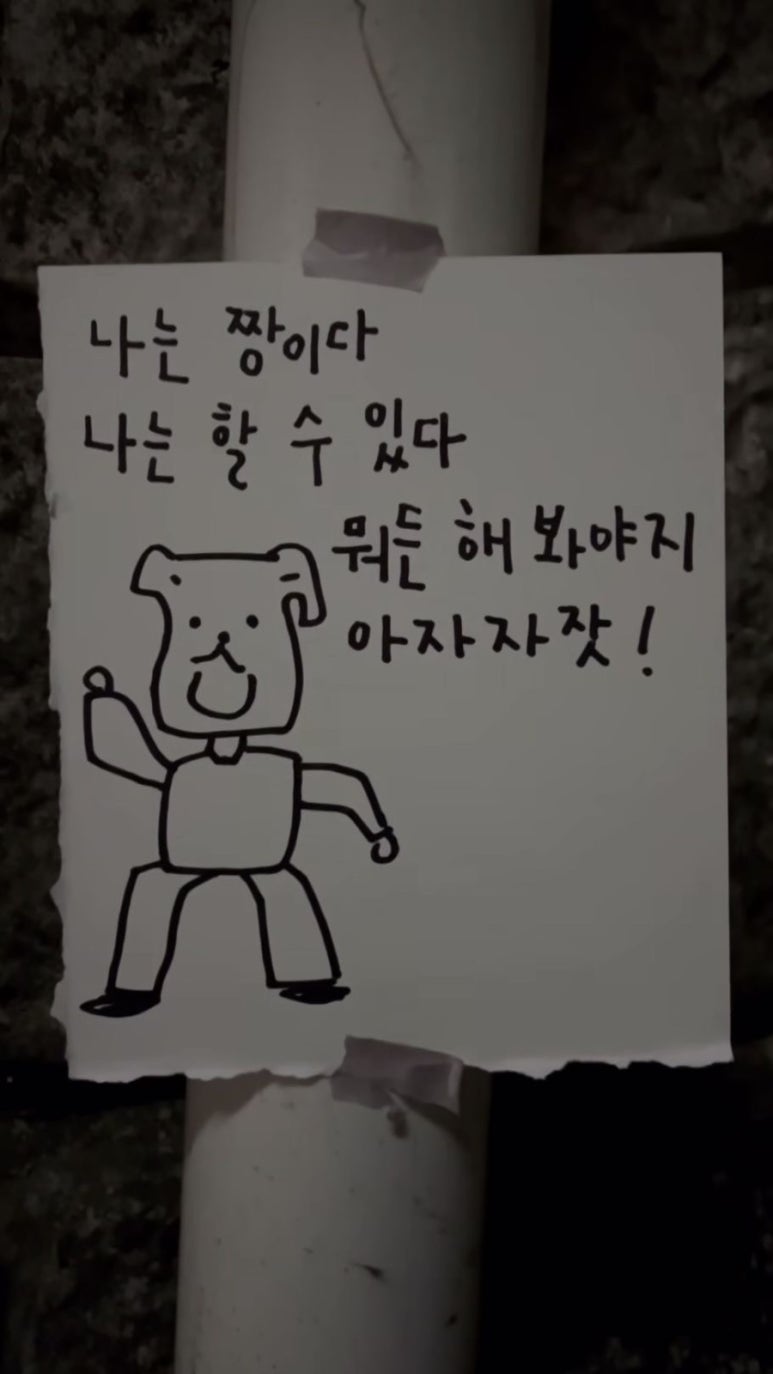 나는 짱이다
나는 할 수 있다
뭐든 해 봐야지
아자자잣!